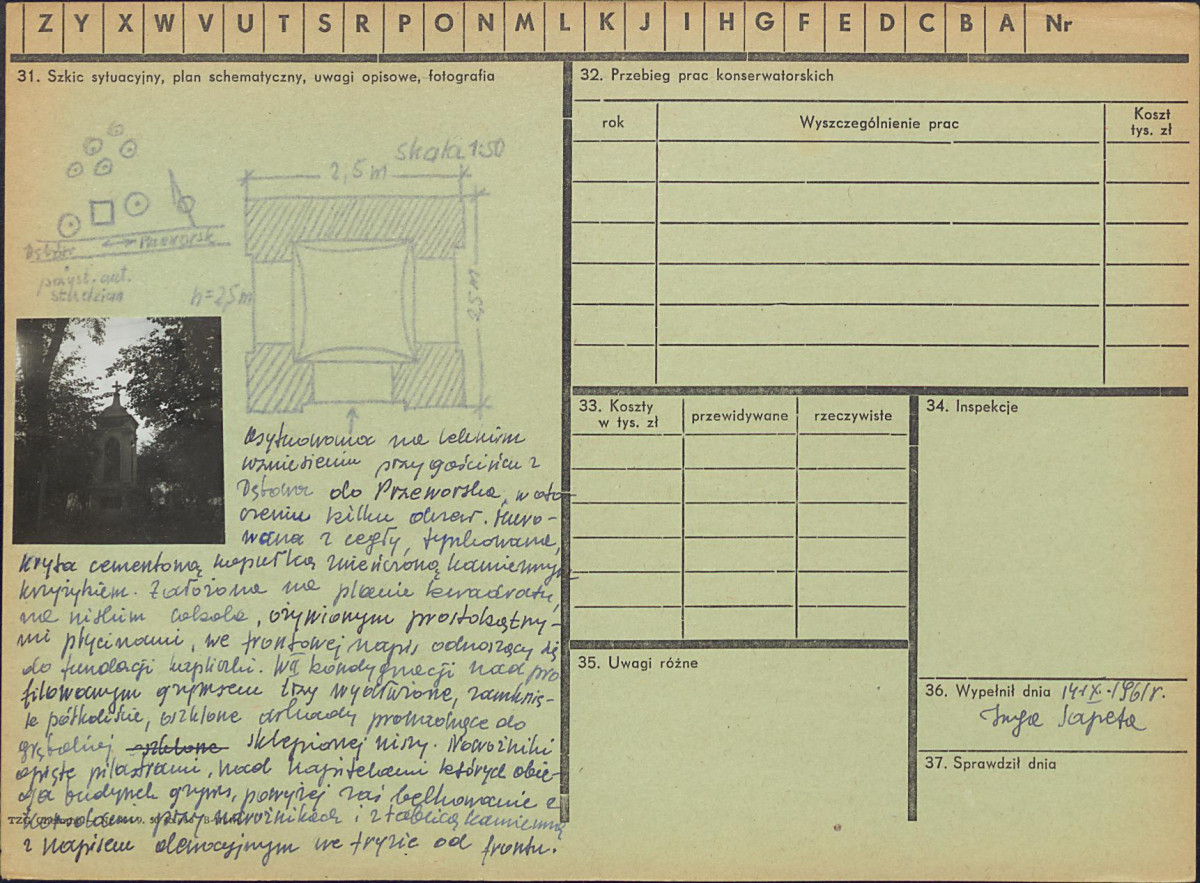 Z Y X W V U T S R P O N M L K J I H G F E D C B A Nr
31. Szkic sytuacyjny, plan schematyczny, uwagi opisowe, fotografia
skala 1:50
2,5 m
Przeworsk
h=2,5 m
2,5 m
Usytuowana na lekkim
wzniesieniu przy gościńcu z
Dębowa do Przeworska, w oto-
czeniu kilku drzew. Muro-
wana z cegły, tynkowana,
kryta cementową kopułką zwieńczoną kamiennym
krzyżykiem. Założona na planie kwadratu,
na niskim cokole, ożywionym prostokątny-
mi płycinami, we frontowej napis odnoszący się
do fundacji kapliczki. W II kondygnacji nad pro
filowanym gzymsem trzy wydłużone, zamknię-
te półkoliście, oszklone arkady prowadzące do
sklepionej niszy. Narożniki
opięte pilastrami, nad kapitelami których obie-
ga budynek gzyms, powyżej zaś belkowanie z
przy narożnikach i z tablicą kamienną
z napisem dewocyjnym we fryzie od frontu.
32. Przebieg prac konserwatorskich
rok
Wyszczególnienie prac
Koszt
tys. zł
33. Koszty
w tys. zł
przewidywane
rzeczywiste
34. Inspekcje
35. Uwagi różne
36. Wypełnił dnia 14.IX.1961r.
Inga Sapeta
37. Sprawdził dnia